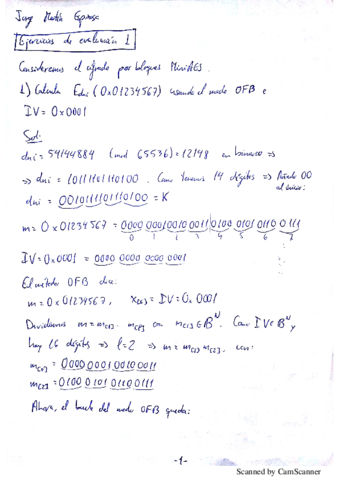 Ejercicios de evaluación 1
Consideremos el cifrado por bloques MiniAES.
1) Calcula E_dni (0x01234567) usando el modo OFB e
IV = 0x0001
Sol:
dni = 54144884 (mod 65536) = 12148 en binario ⇒
⇒ dni = 10111101110100. Como tenemos 14 dígitos ⇒ Añado 00
al inicio:
dni = 0010111101110100 = K
m = 0x01234567 = 0000 0001 0010 0011 0100 0101 0110 0111
0 1 2 3 4 5 6 7
IV = 0x0001 = 0000 0000 0000 0001
El método OFB dice:
m = 0x01234567, x[1] = IV = 0x0001
Dividimos m = m[1] … m[l] con m[i] ∈ B^N. Como IV ∈ B^N y
hay 16 dígitos ⇒ l = 2 ⇒ m = m[1] m[2], con:
m[1] = 0000 0001 0010 0011
m[2] = 0100 0101 0110 0111
Ahora, el bucle del modo OFB queda:
-1-
Scanned by CamScanner